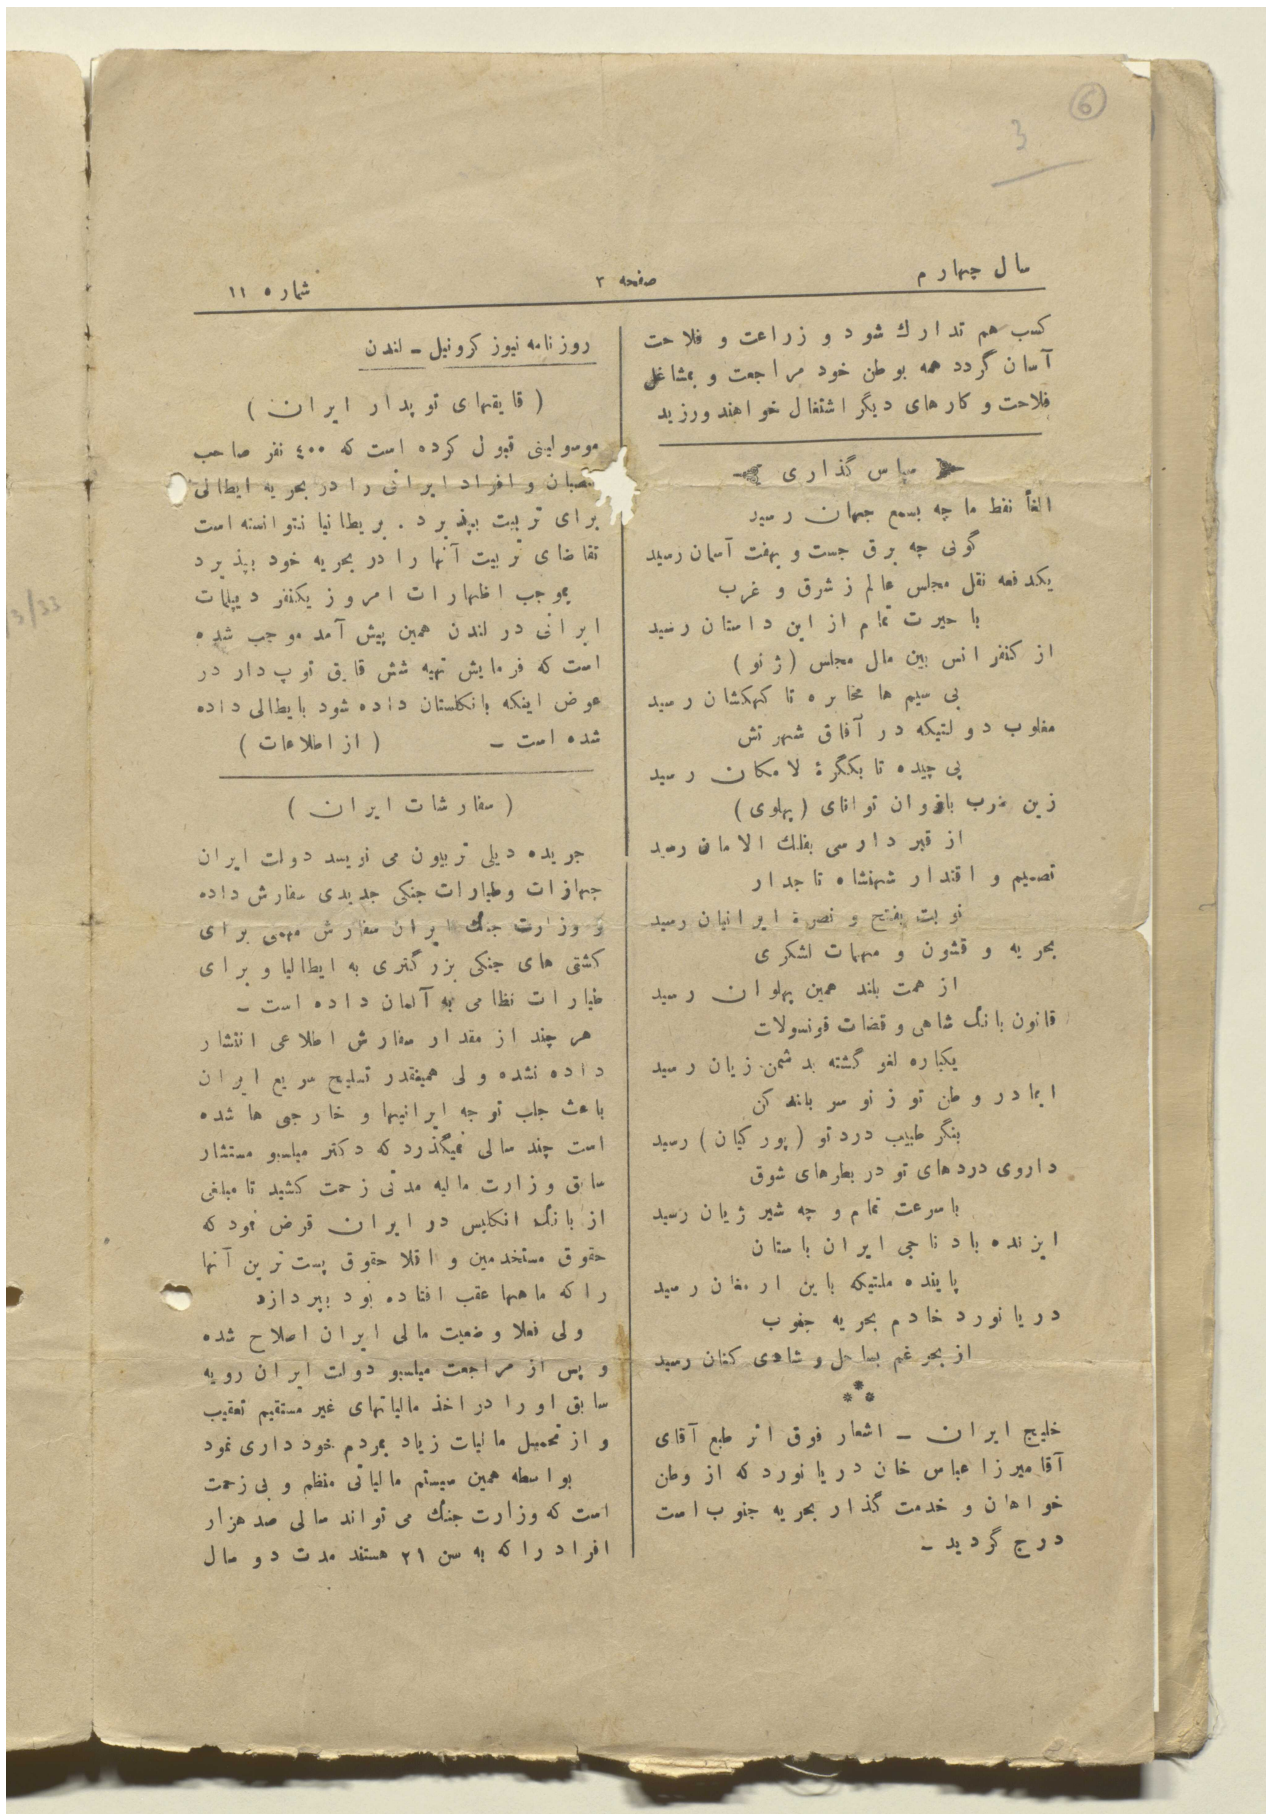 6
3
سال چهارم
صفحه ۳
شماره ۱۱
کسب هم تدارك شود و زراعت و فلاحت
آسان گردد همه بوطن خود مراجعت و بمشاغل
فلاحت و کارهای دیگر اشتغال خواهند ورزید
سپاس گذاری
الغأ نفط ما چه بسمع جهان رسید
گوئی چه برق جست و بهفت آسمان رسید
یکدفعه نقل مجلس عالم ز شرق و غرب
با حیرت تمام از این داستان رسید
از کنفرانس بین مال مجلس ( ژنو )
بی سیم ها مخابره تا کهکشان رسید
مغلوب دولتیکه در آفاق شهرتش
پی چیده تا بکنگرۀ لامکان رسید
زین ضرب بازوان توانای (پهلوی)
از قبر دارسی بفلك الامان رسید
تصمیم و اقتدار شهنشاه تاجدار
نوبت بفتح و نصرة ایرانیان رسید
بحریه و قشون و مهمات لشکری
از همت بلند همین پهلوان رسید
قانون بانك شاهی و قضات قونسولات
یکباره لغو گشته بدشمن زیان رسید
ایمادر وطن تو ز نو سر بلند کن
بنگر طبیب درد تو ( پور کیان ) رسید
داروی دردهای تو در بطرهای شوق
با سرعت تمام و چه شیر ژیان رسید
ایزنده باد ناجی ایران باستان
پاینده ملتیکه باین ارمغان رسید
دریانورد خادم بحریه جنوب
از بحر غم بساحل و شادی کنان رسید
خلیج ایران ـ اشعار فوق اثر طبع آقای
آقا میرزا عباس خان دریانورد که از وطن
خواهان و خدمت گذار بحریه جنوب است
درج گردید ـ
روزنامه نیوز کرونیل ـ لندن
( قایقهای توپدار ایران )
موسولینی قبول کرده است که ٤٠٠ نفر صاحب
منصبان و افراد ایرانی را در بحریه ایطالی
برای تربیت بپذیرد . بریطانیا نتوانسته است
تقاضای تربیت آنها را در بحریه خود بپذیرد
بموجب اظهارات امروز یکنفر دیپلمات
ایرانی در لندن همین پیش آمد موجب شده
است که فرمایش تهیه شش قایق توپ دار در
عوض اینکه بانگلستان داده شود بایطالی داده
شده است ـ ( از اطلاعات )
( سفارشات ایران )
جریده دیلی تریبون می نویسد دولت ایران
جهازات و طیارات جنکی جدیدی سفارش داده
و وزارت جنك ایران سفارش مهمی برای
کشتی های جنکی بزرگتری به ایطالیا و برای
طیارات نظامی به آلمان داده است ـ
هر چند از مقدار سفارش اطلاعی انتشار
داده نشده ولی همینقدر تسلیح سریع ایران
باعث جلب توجه ایرانیها و خارجی ها شده
است چند سالی نمیگذرد که دکتر میلسپو مستشار
سابق وزارت مالیه مدتی زحمت کشید تا مبلغی
از بانك انکلیس در ایران قرض نمود که
حقوق مستخدمین و اقلا حقوق پست ترین آنها
را که ماهها عقب افتاده بود بپردازد
ولی فعلا وضعیت مالی ایران اصلاح شده
و پس از مراجعت میلسپو دولت ایران رویه
سابق او را در اخذ مالیاتهای غیر مستقیم تعقیب
و از تحمیل مالیات زیاد بمردم خود داری نمود
بواسطه همین سیستم مالیاتی منظم و بی زحمت
است که وزارت جنك می تواند سالی صد هزار
افراد را که به سن ۲۱ هستند مدت دو سال